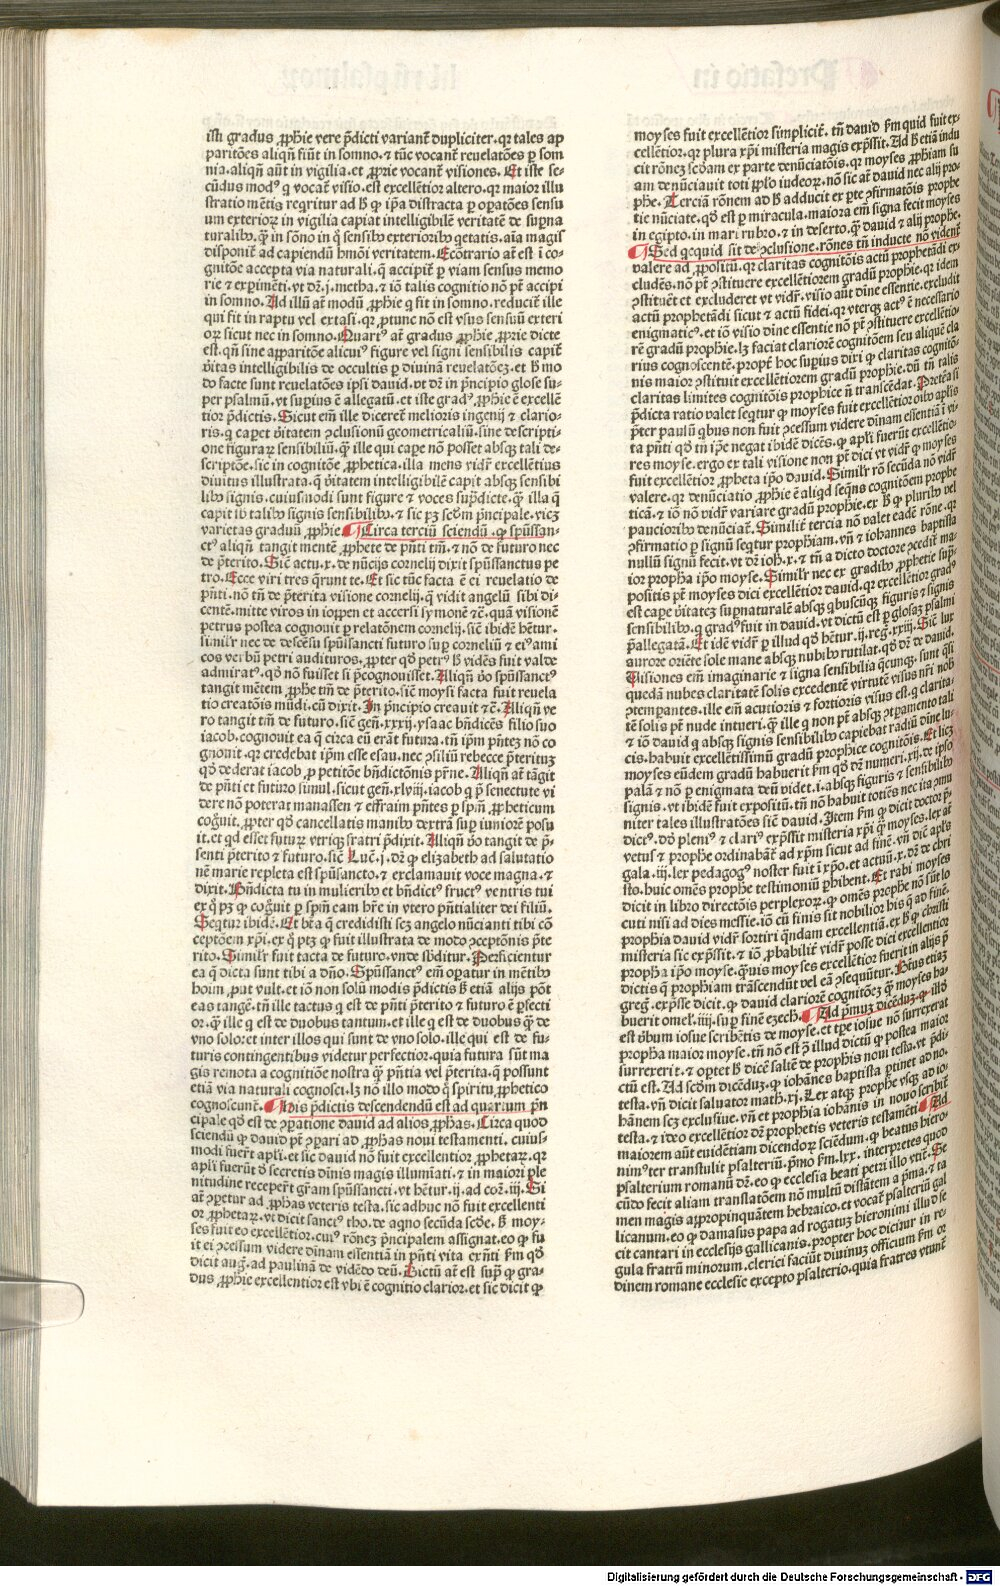 isti gradus ꝓphīe vere p̄dicti variant̄ dupliciter. qꝛ tales ap
paritōes aliqñ fiūt in somno. ⁊ tūc vocant̄ reuelatōes ꝑ som
nia. aliqñ aūt in vigilia. et ꝓprie vocant̄ visiones. Et iste se⸗
cūdus modꝰ q̄ vocat̄ visio. est excellētior altero. qꝛ maior illu
stratio mētis reqritur ad ꝙ ip̄a distracta ꝑ oꝑatōes sensu
um exterioꝝ in vigilia capiat intelligibilē veritatē de suꝑna
turalibꝰ. q̄ꝫ in sōno in q̄ sensibꝰ exterioribꝰ q̄etatis. aīa magis
disponit̄ ad capiendū hmōi veritatem. Ecōtrario at̄ est ī co⸗
gnitōe accepta via naturali. q̄ accipit̄ ꝑ viam sensus memo
rie ⁊ exꝑimēti. vt dꝛ. j. metha. ⁊ iō talis cognitio nō pt̄ accipi
in somno. Ad illū at̄ modū ꝓphīe q̄ fit in somno. reducit̄ ille
qui fit in raptu vel extasi. qꝛ ꝓtunc nō est vsus sensuū exteri
oꝝ sicut nec in somno. Quartꝰ at̄ gradus ꝓphīe ꝓprie dicte
est. qñ sine apparitōe alicuiꝰ figure vel signi sensibilis capit̄
v̄itas intelligibilis de occultis ꝑ diuinā reuelatōeꝫ. et ꝙ mo
do facte sunt reuelatōes ipsi dauid. vt dꝛ in p̄ncipio glose su⸗
per psalmū. vt supius ē allegatū. et iste gradꝰ ꝓphīe ē excellē
tior p̄dictis. Sicut em̄ ille diceret̄ melioris ingenij ⁊ clario⸗
ris. q̄ caꝑet v̄itatem ꝯclusionū geometricaliū. sine descripti⸗
one figuraꝝ sensibiliū. q̄ꝫ ille qui caꝑe nō posset absqꝫ tali de⸗
scriptōe. sic in cognitōe ꝓphetica. illa mens vidꝛ excellētius
diuitus illustrata. q̄ v̄itatem intelligibilē capit absqꝫ sensibi
libꝰ signis. cuiusmodi sunt figure ⁊ voces sup̄dicte. q̄ꝫ illa q̄
capit sb talibꝰ signis sensibilibꝰ. ⁊ sic pꝫ scḋm p̄ncipale. vicꝫ
varietas graduū ꝓphīe. Circa terciū sciendū. ꝙ spūssan⸗
ctꝰ aliqñ tangit mentē ꝓphete de p̄nti tm̄. ⁊ nō de futuro nec
de p̄terito. Sic̄ actu. x. de nūcijs cornelij dixit spūssanctus pe
tro. Ecce viri tres q̄runt te. Et sic tūc facta ē ei reuelatio de
p̄nti. nō tn̄ de p̄terita visione cornelij. q̄ vidit angelū sibi di⸗
centē. mitte viros in ioppen et accersi symonē ⁊c̄. quā visionē
petrus postea cognouit ꝑ relatōnem cornelij. sic̄ ibidē hētur.
similr̄ nec de descēsu spūssancti futuro suꝑ corneliū ⁊ eiꝰ ami
cos verbū petri audituros. ꝓpter qḋ petrꝰ ꝙ vidēs fuit valde
admiratꝰ. qḋ nō fuisset si p̄cognouisset. Aliqñ v̄o spūssanctꝰ
tangit mētem ꝓphe tm̄ de p̄terito. sic̄ moysi facta fuit reuela
tio creatōis mūdi. cū dixit. In p̄ncipio creauit ⁊c̄. Aliqñ ve⸗
ro tangit tm̄ de futuro. sic̄ gen̄. xxxij. ysaac bn̄dicēs filio suo
iacob. cognouit ea q̄ circa eū erāt futura. tn̄ ip̄m p̄ntez nō co
gnouit. qꝛ credebat ip̄m esse esau. nec ꝯsiliū rebecce p̄teritū
qḋ dederat iacob ꝓ petitōe bn̄dictōnis pr̄ne. Aliqñ at̄ tāgit
de p̄nti et futuro simul. sicut gen̄. xlviij. iacob q̄ p̄ senectute vi
dere nō poterat manassen ⁊ effraim p̄ntes ꝑ spm̄ ꝓpheticum
cogͦuit. ꝓpter qḋ cancellatis manibꝰ dextrā suꝑ iuniorē posu
it. et qd esset futurꝝ vtriqꝫ fratri p̄dixit. Aliqñ v̄o tangit de p̄⸗
senti p̄terito ⁊ futuro. sic̄ Luc̄. j. dꝛ ꝙ elizabeth ad salutatio
nē marie repleta est spūsancto. ⁊ exclamauit voce magna. ⁊
dixit. Bn̄dicta tu in mulieribꝰ et bn̄dictꝰ fructꝰ ventris tui
ex q̄ pꝫ ꝙ cogͦuit ꝑ spm̄ eam hr̄e in vtero p̄ntialiter dei filiū.
Seq̄tur ibidē. Et br̄a q̄ credidisti scꝫ angelo nūcianti tibi cō
ceptōem xp̄i. ex q̄ ptꝫ ꝙ fuit illustrata de modo ꝯceptōnis p̄te
rito. Similr̄ fuit tacta de futuro. vnde sb̄ditur. Perficientur
ea q̄ dicta sunt tibi a dn̄o. Spūssanctꝰ em̄ oꝑatur in mētibꝰ
hoīm ꝓut vult. et iō non solū modis p̄dictis ꝙ etiā alijs pōt
eas tangē. tn̄ ille tactus q̄ est de p̄nti p̄terito ⁊ futuro ē ꝑfecti
or. q̄ꝫ ille q̄ est de duobus tantum. et ille q̄ est de duobus q̄ꝫ de
vno solo. et inter illos qui sunt de vno solo. ille qui est de fu⸗
turis contingentibus videtur perfectior. quia futura sūt ma
gis remota a cognitiōe nostra q̄ꝫ p̄ntia vel p̄terita. q̄ possunt
etiā via naturali cognosci. lꝫ nō illo modo q̄ spiritu ꝓphetico
cognoscunt̄. His p̄dictis descendendū est ad quartum p̄n
cipale qḋ est de ꝯꝑatione dauid ad alios ꝓphās. Circa quod
sciendū ꝙ dauid pt̄ ꝯꝑari ad ꝓphās noui testamenti. cuius⸗
modi fuer̄t apl̄i. et sic dauid nō fuit excellentior ꝓphetaꝝ. qꝛ
apl̄i fuerūt d̄ secretis diuīnis magis illumīati. ⁊ in maiori ple
nitudine receper̄t gr̄am spūssancti. vt hētur. ij. ad coꝝ. iij. Si
at̄ ꝯꝑetur ad ꝓphās veteris testa. sic adhuc nō fuit excellenti
or ꝓphetaꝝ. vt dicit sanctꝰ tho. de aqno secūda scḋe. ꝙ moy⸗
ses fuit eo excellētior. cuiꝰ rōnez p̄ncipalem assignat. eo ꝙ fu
it ei ꝯcessum videre diuinam essentiā in p̄nti vita exn̄ti fm̄ qḋ
dicit aug. ad paulinā de vidēdo deū. Dictū at̄ est supͣ ꝙ gra⸗
dus ꝓphīe excellentior est vbi ē cognitio clarior. et sic dicit ꝙ
moyses fuit excellētior simplicit̄. tn̄ dauid fm̄ quid fuit ex⸗
cellētior. qꝛ plura xp̄i misteria magis exp̄ssit. Ad ꝙ etiā indu
cit rōnez scḋam ex parte denūciatōis. qꝛ moyses ꝓphīam su
am denūciauit toti ꝓpl̄o iudeoꝝ. nō sic at̄ dauid nec alij pro⸗
phe. Terciā rōnem ad ꝙ adducit ex ꝑte ꝯfirmatōis prophe
tie nūciate. qḋ est ꝑ miracula. maiora em̄ signa fecit moyses
in egipto. in mari rubro. ⁊ in deserto. q̄ꝫ dauid ⁊ alij prophe.
Sed q̄cquid sit de ꝯclusione. rōnes tn̄ inducte nō vident̄
valere ad ꝓpositū. qꝛ claritas cognitōis actū prophetādi ex⸗
cludēs. nō pt̄ ꝯstituere excellētiorem gradū prophīe. qꝛ idem
ꝯstitueret et excluderet vt vidr̄. visio aūt diuīe essentie. excludit
actū prophetādi sicut ⁊ actū fidei. qꝛ vterqꝫ actꝰ ē necessario
enigmaticꝰ. et iō visio diuīe essentie nō pt̄ ꝯstituere excellētio⸗
rē gradū prophīe. lꝫ faciat clariorē cognitōem seu aliquē cla
rius cognoscentē. propt̄ hoc supius dixi ꝙ claritas cognitō⸗
nis maior ꝯstituit excellētiorem gradū prophīe. dū tn̄ talis
claritas limites cognitōis prophice nō transcēdat. Preteͣ si
p̄dicta ratio valet seq̄tur ꝙ moyses fuit excellētior oībꝰ apl̄is
p̄ter paulū q̄bus non fuit ꝯcessum videre diuīnam essentiā ī vi⸗
ta p̄nti qḋ tn̄ ip̄e negat ibidē dicēs. ꝙ apl̄i fuerūt excellētio⸗
res moyse. ergo ex tali visione non pt̄ dici vt vidr̄ ꝙ moyses
fuit excellētior ꝓpheta ip̄o dauid. Similr̄ rō secūda nō vidr̄
valere. qꝛ denūciatio ꝓphīe ē aliqd seq̄ns cognitōem prophe
ticā. ⁊ iō nō vidr̄ variare gradū prophīe. ex ꝙ ꝙ pluribꝰ vel
paucioribꝰ denūciat̄. Similit̄ tercia nō valet eadē rōne. qꝛ
ꝯfirmatio ꝑ signū seq̄tur prophīam. vn̄ ⁊ iohannes baptista
nullū signū fecit. vt dꝛ ioh̄. x. ⁊ tn̄ a dicto doctore ꝯcedit̄ ma⸗
ior propha ip̄o moyse. Similr̄ nec ex gradibꝰ ꝓphetie suꝑi⸗
positis pt̄ moyses dici excellētior dauid. qꝛ excellētior gradꝰ
est caꝑe v̄itateꝫ suꝑnaturalē absqꝫ q̄buscūqꝫ figuris ⁊ signis
sensibilibꝰ. q̄ gradꝰ fuit in dauid. vt dictū est ꝑ glosaꝫ psalmi
p̄allegatā. Et idē vidr̄ ꝑ illud qḋ hētur. ij. reg. xxiij. Sic̄ lux
aurore oriēte sole mane absqꝫ nubibꝰ rutilat. qḋ dꝛ de dauid.
Visiones em̄ imaginarie ⁊ signa sensibilia q̄cunqꝫ. sunt q̄si
quedā nubes claritatē solis excedentē virtutē visus nr̄i nobꝰ
ꝯtemꝑantes. ille em̄ acutioris ⁊ fortioris visus est. q̄ clarita⸗
tē solis pt̄ nude intueri. q̄ꝫ ille q̄ non pt̄ absqꝫ ꝯtꝑamento tali
⁊ iō dauid q̄ absqꝫ signis sensibilibꝰ capiebat radiū diuīe lu⸗
cis. habuit excellētissimū gradū prophice cognitōis. Et licꝫ
moyses eūdem gradū habuerit fm̄ qḋ dꝛ numeri. xij. de ip̄so
palā ⁊ nō ꝑ enigmata deū videt. i. absqꝫ figuris ⁊ sensibilibꝰ
signis. vt ibidē fuit expositū. tn̄ nō habuit totiēs nec ita ꝯmu
niter tales illustratōes sic̄ dauid. Item fm̄ ꝙ dicit doctor p̄⸗
dictꝰ. dd̄ pleniꝰ ⁊ clariꝰ exp̄ssit misteria xp̄i q̄ꝫ moyses. lex at̄
vetus ⁊ prophe ordinabāt̄ ad xp̄m sicut ad finē. vn̄ dic̄ apl̄s
gala. iij. lex pedagogꝰ noster fuit ī xp̄o. et actuū. x. dꝛ de chri
sto. huic omēs prophe testimoniū ꝑhibent. Et rabi moyses
dicit in libro directōis perplexoꝝ. ꝙ omēs prophe nō sūt lo
cuti nisi ad dies messie. iō cū finis sit nobilior his q̄ ad finē.
prophīa dauid vidr̄ sortiri q̄ndam excellentiā. ex ꝙ ꝙ christi
misteria sic exp̄ssit. ⁊ iō ꝓbabilit̄ vidr̄ posse dici excellentior
propha ip̄o moyse. q̄ꝫuis moyses excellētior fuerit in alijs p̄
dictis q̄ prophīam trāscendūt vel eā ꝯsequūtur. Bt̄us etiaꝫ
greg. exp̄sse dicit. ꝙ dauid clariorē cognitōeꝫ q̄ꝫ moyses ha⸗
buerit omel̄. iiij. suꝑ finē ezech. Ad p̄muꝫ dicēduꝫ. ꝙ illḋ
est v̄bum iosue scribētis de moyse. et tꝑe iosue nō surrexerat
propha maior moyse. tn̄ nō est ꝓ illud dictū ꝙ postea maior
surrexerit. ⁊ optet ꝙ dicē saltē de prophis noui testa. vt p̄di⸗
ctū est. Ad scḋm dicēduꝫ. ꝙ iohānes baptista ꝑtinet ad no.
testa. vn̄ dicit saluator math. xj. Lex atqꝫ prophe vsqꝫ ad io⸗
hānem scꝫ exclusiue. vn̄ et prophīa iohānis in nouo scribit̄
testa. ⁊ ideo excellētior dꝛ prophetis veteris testamēti. Ad
maiorem aūt euidētiam dicendoꝝ sciēdum. ꝙ beatus hiero⸗
nimꝰ ter transtulit psalteriū. p̄mo fm̄. lxx. interpretes quod
psalterium romanū dꝛ. eo ꝙ ecclesia beati petri illo vtit̄. Se
cūdo fecit aliam translatōem nō multū distātem a p̄ma. ⁊ ta
men magis appropinquātem hebraico. et vocat̄ psalteriū gal
licanum. eo ꝙ damasus papa ad rogatuꝫ hieronimi illud fe
cit cantari in ecclesijs gallicanis. propter hoc dicitur in re⸗
gula fratrū minorum. clerici faciūt diuinuꝫ officium fm̄ or
dinem romane ecclesie excepto psalterio. quia fratres vtunt̄
Digitalisierung gefördert durch die Deutsche Forschungsgemeinschaft - DFG